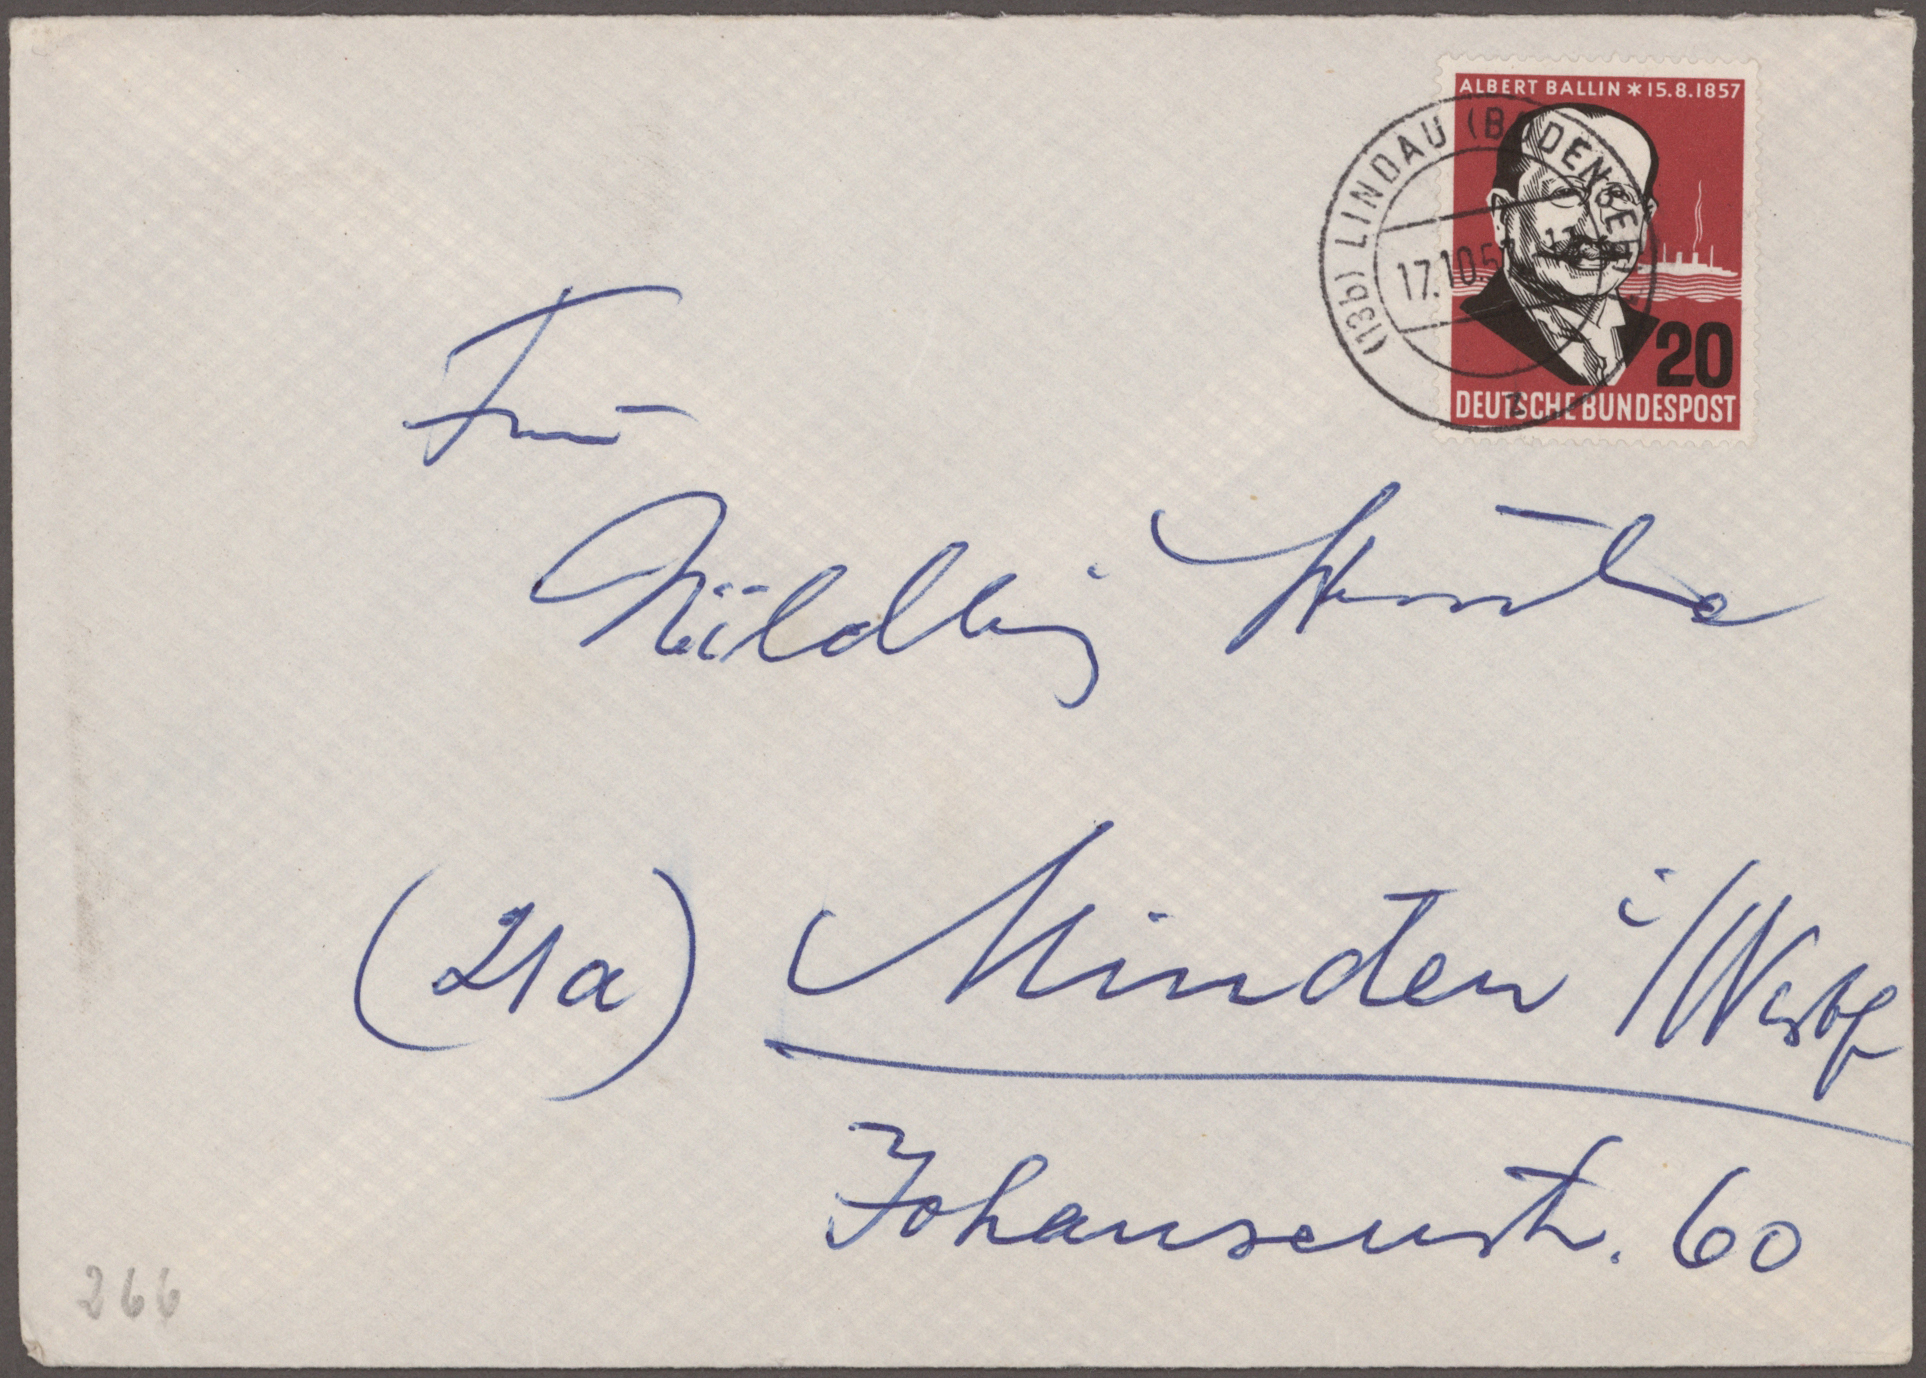 ALBERT BALLIN * 15.8.1857
(13b) LINDAU (BODENSEE)
17.10.5
z
20
DEUTSCHE BUNDESPOST
Frau
(21a) Minden i/Westf
Johansenstr. 60
266